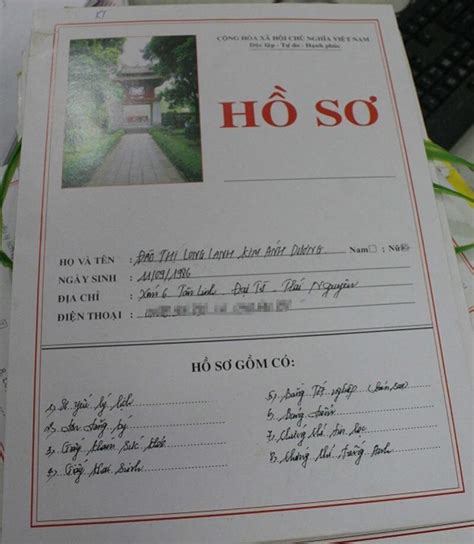 CỘNG HÒA XÃ HỘI CHỦ NGHĨA VIỆT NAM
Độc lập - Tự do - Hạnh phúc
HỒ SƠ
HỌ VÀ TÊN : ĐÀO THỊ LONG LANH KIM ÁNH DƯƠNG Nam ; Nữ
NGÀY SINH : 11/09/1986
ĐỊA CHỈ : Xóm 6 Tân Linh - Đại Từ - Thái Nguyên
ĐIỆN THOẠI :
HỒ SƠ GỒM CÓ:
1, Sơ yếu lý lịch
2,
3, Giấy khám sức khỏe
4, Giấy khai sinh
5, Bằng Tốt nghiệp
6, Bảng điểm
7, Chứng chỉ tin học
8, Chứng chỉ tiếng Anh